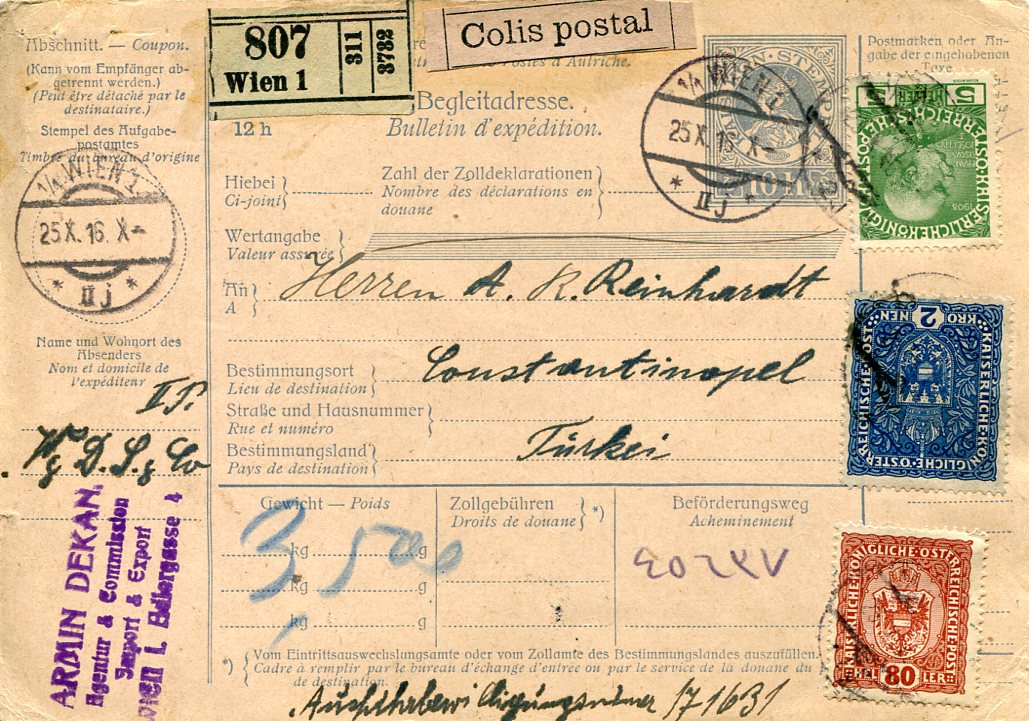 Abschnitt. — Coupon.
(Kann vom Empfänger ab-
getrennt werden.)
(Peut être détaché par le
destinataire.)
Stempel des Aufgabe-
postamtes
Timbre du bureau d'origine
1/1 WIEN 1
25 X. 16. X-
* II j *
Name und Wohnort des
Absenders
Nom et domicile de
l'expéditeur
ARMIN DEKAN,
Agentur & Commission
Import & Export
Wien I. Adlergasse 4
807
Wien 1
311
3732
Colis postal
Postes d'Autriche.
Begleitadresse.
12 h
Bulletin d'expédition.
Hiebei
Ci-joint
Zahl der Zolldeklarationen
Nombre des déclarations en
douane
Wertangabe
Valeur assurée
An
A
Herren A. R. Reinhardt
Bestimmungsort
Lieu de destination
Constantinopel
Straße und Hausnummer
Rue et numéro
Bestimmungsland
Pays de destination
Türkei
Gewicht — Poids
3, 500
kg g
kg g
kg g
Zollgebühren *)
Droits de douane
Beförderungsweg
Acheminement
*) Vom Eintrittsauswechslungsamte oder vom Zollamte des Bestimmungslandes auszufüllen.
Cadre à remplir par le bureau d'échange d'entrée ou par le service de la douane du
de destination.
171631
Postmarken oder An-
gabe der eingehobenen
Taxe
1/1 WIEN 1
25 X. 16. X-
* II j *
5 5
1908
KAISERLICHE KÖNIGLICHE ÖSTERREICHISCHE POST
KRO 2 NEN
KAISERLICHE KÖNIGLICHE ÖSTERREICHISCHE POST
HEL 80 LER